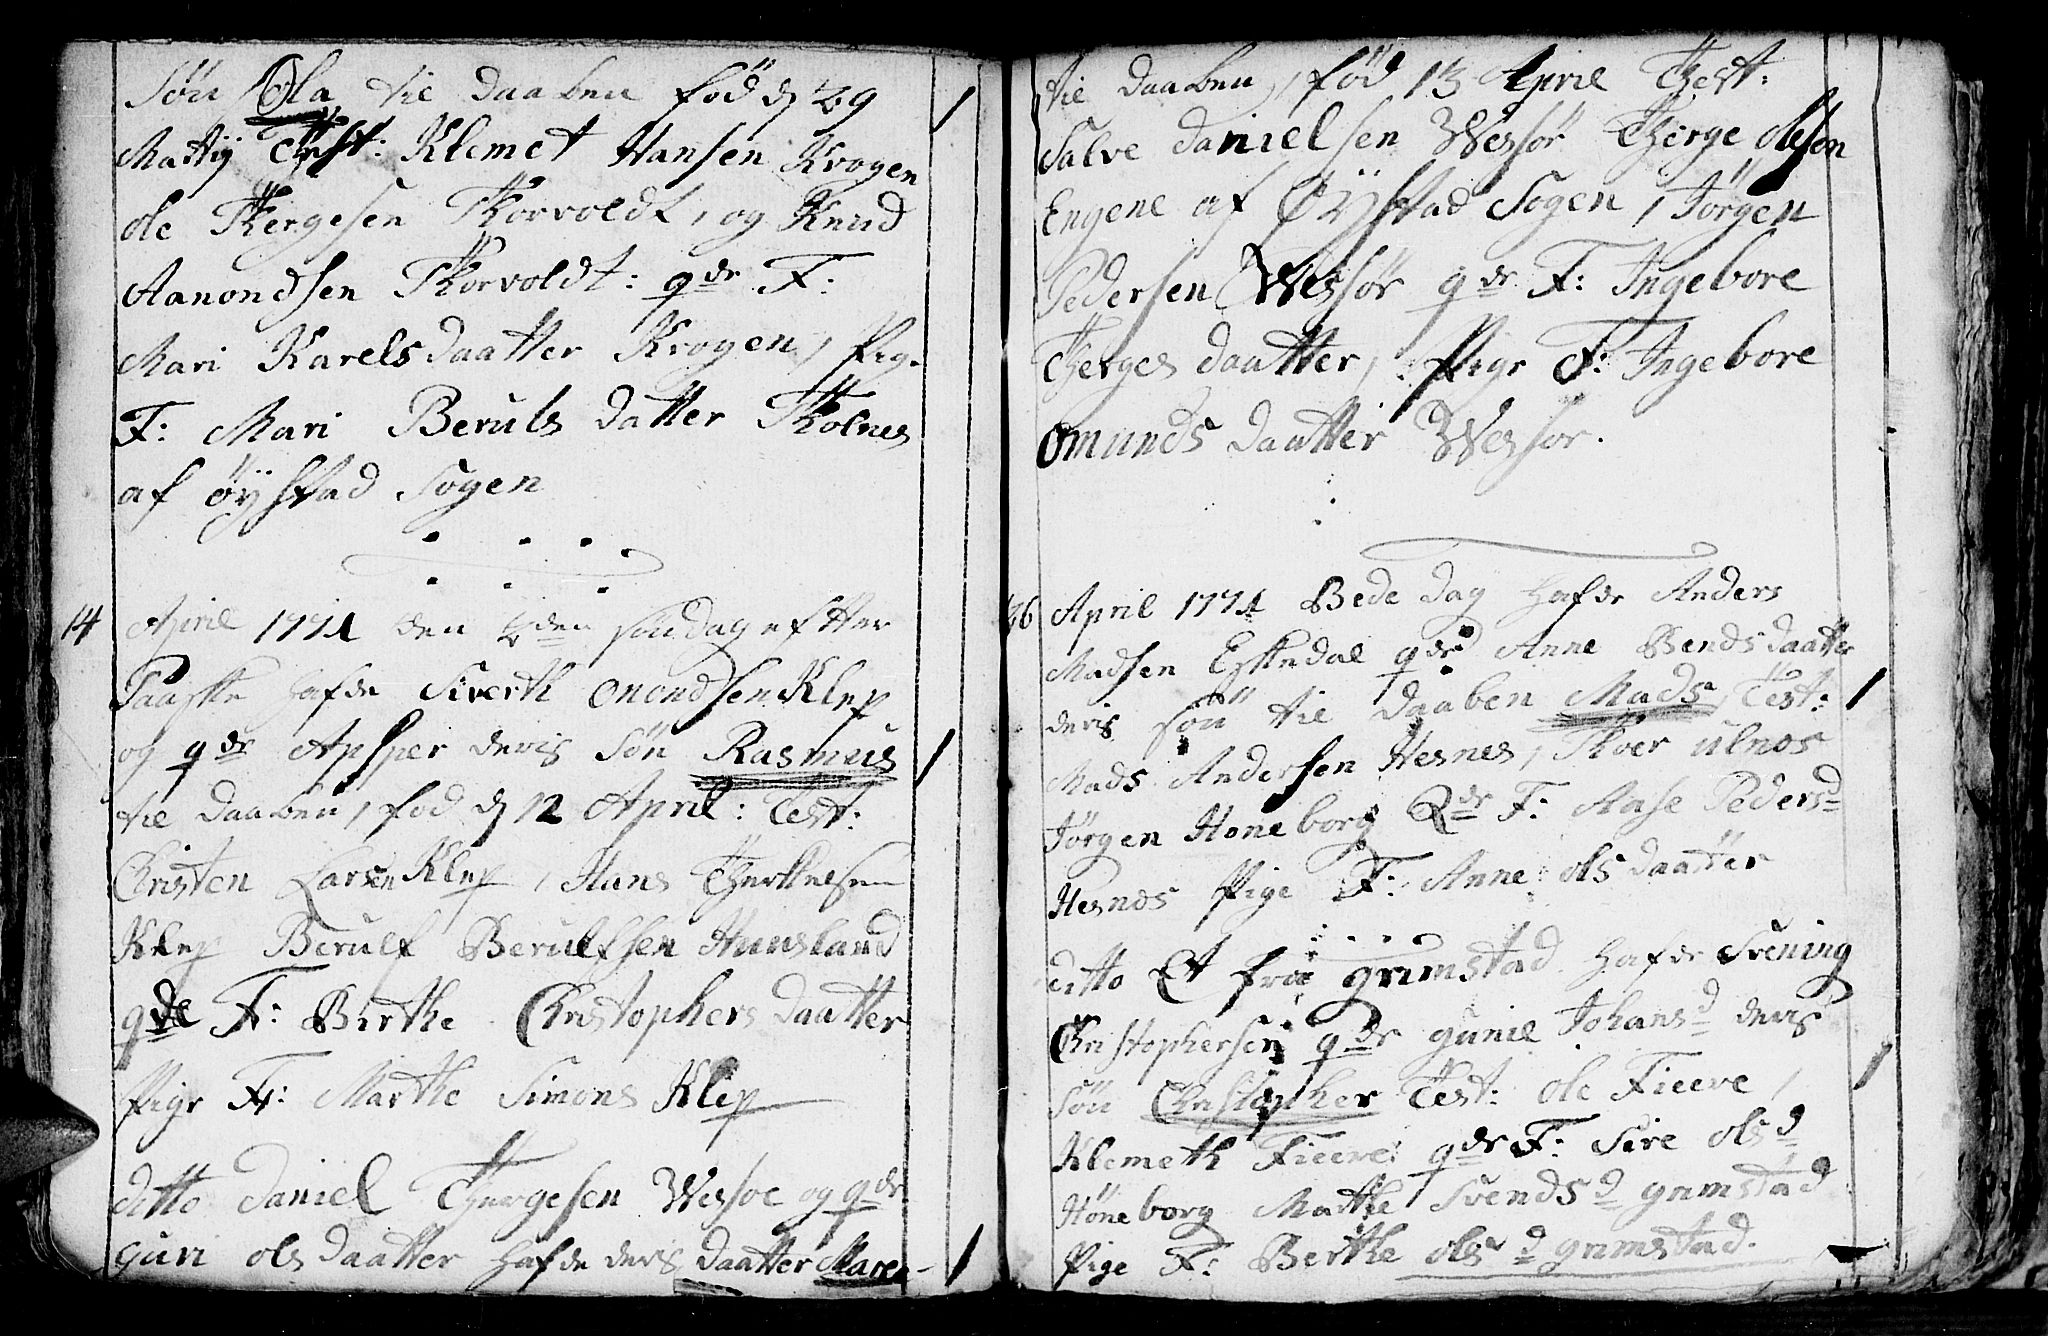 Søn Ola til daaben fød d 29
Martij Test: Klemet Hansen Krogen
ole Tergesen Torvoldt, og Knud
Aanondsen Torvoldt: qde F:
Mari Karels daatter Krogen, Pig.
F: Mari Beruls datter Tolnes
af Øÿstad Sogen
14 April 1771 den 2den søndag efter
Paaske hafde Siverth Omondsen Klep
og qde Apsper deris Søn Rasmus
til daaben, fød d 12 April: Test:
Christen Larsen Klep, Hans Therkelsen
Klep Berulf Berulfsen Hunsland
qde F: Birthe Christophers daatter
Pige F: Marthe Simons Klep
ditto Daniel Thergesen Wessøe og qde
Guri ols daatter hafde deris daatter Maren
til daaben, fød 13 April Test:
Salve Danielsen Wessør Therge Olesøn
Engene af Øÿstad Sogen, Jørgen
Pedersen Wessør qde F: Ingebore
Therges daatter, Pige F: Ingebore
Omunds daatter Wessør.
26 April 1771 Bede Dag hafde Anders
Madsen Eskedal qde Anne Bends daatter
deris søn til daaben Mads, Test:
Mads Andersen Hesnes, Ulnæs
Jørgen Honeborg Qde F: Aase Pedersd
Hesnæs Pige F: Anne ols daatter
ditto Et fra grimstad hafde Svening
Christophersen qde gunil Johansd deris
søn Christopher Test: ole Fieere,
Klemeth Fieere: qde F: Sire olsd
Høneborg Marthe Svendsd grimstad
Pige F: Berthe olsd grimstad.